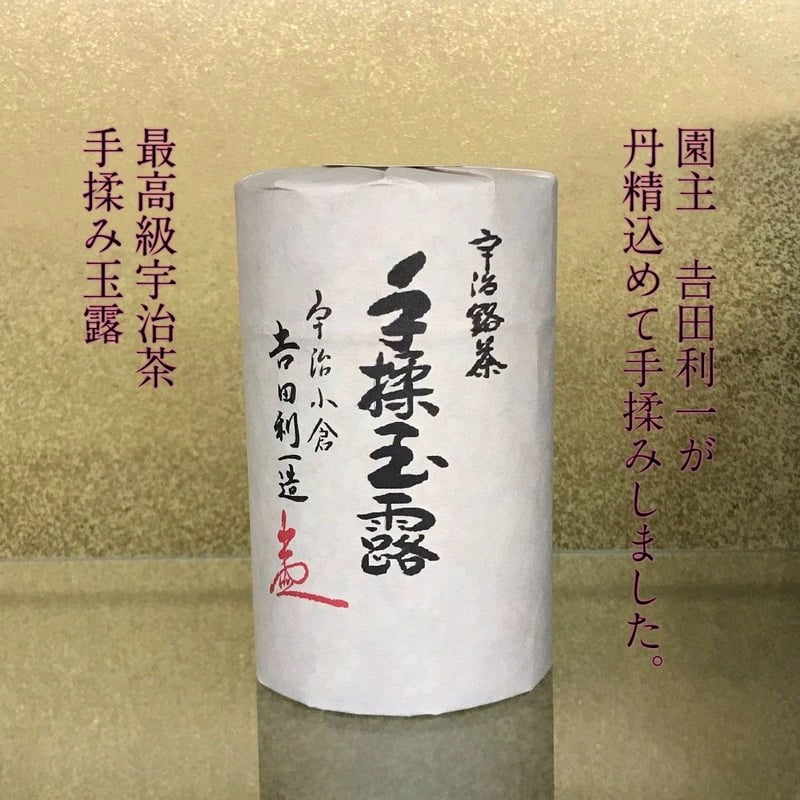 園主　𠮷田利一が
丹精込めて手揉みしました。
宇治銘茶
手揉玉露
宇治小倉
𠮷田利一造
最高級宇治茶
手揉み玉露